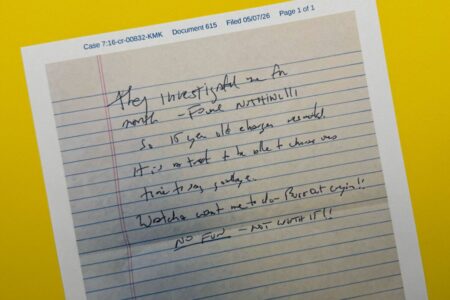 Case 7:16-cr-00832-KMK Document 615 Filed 05/07/26 Page 1 of 1
They investigated me for
month - Found NOTHING!!!
So 15 year old charges resulted.
It is a treat to be able to choose ones
time to say goodbye.
Watcha want me to do - Burst out crying!!
NO FUN - NOT WORTH IT!!